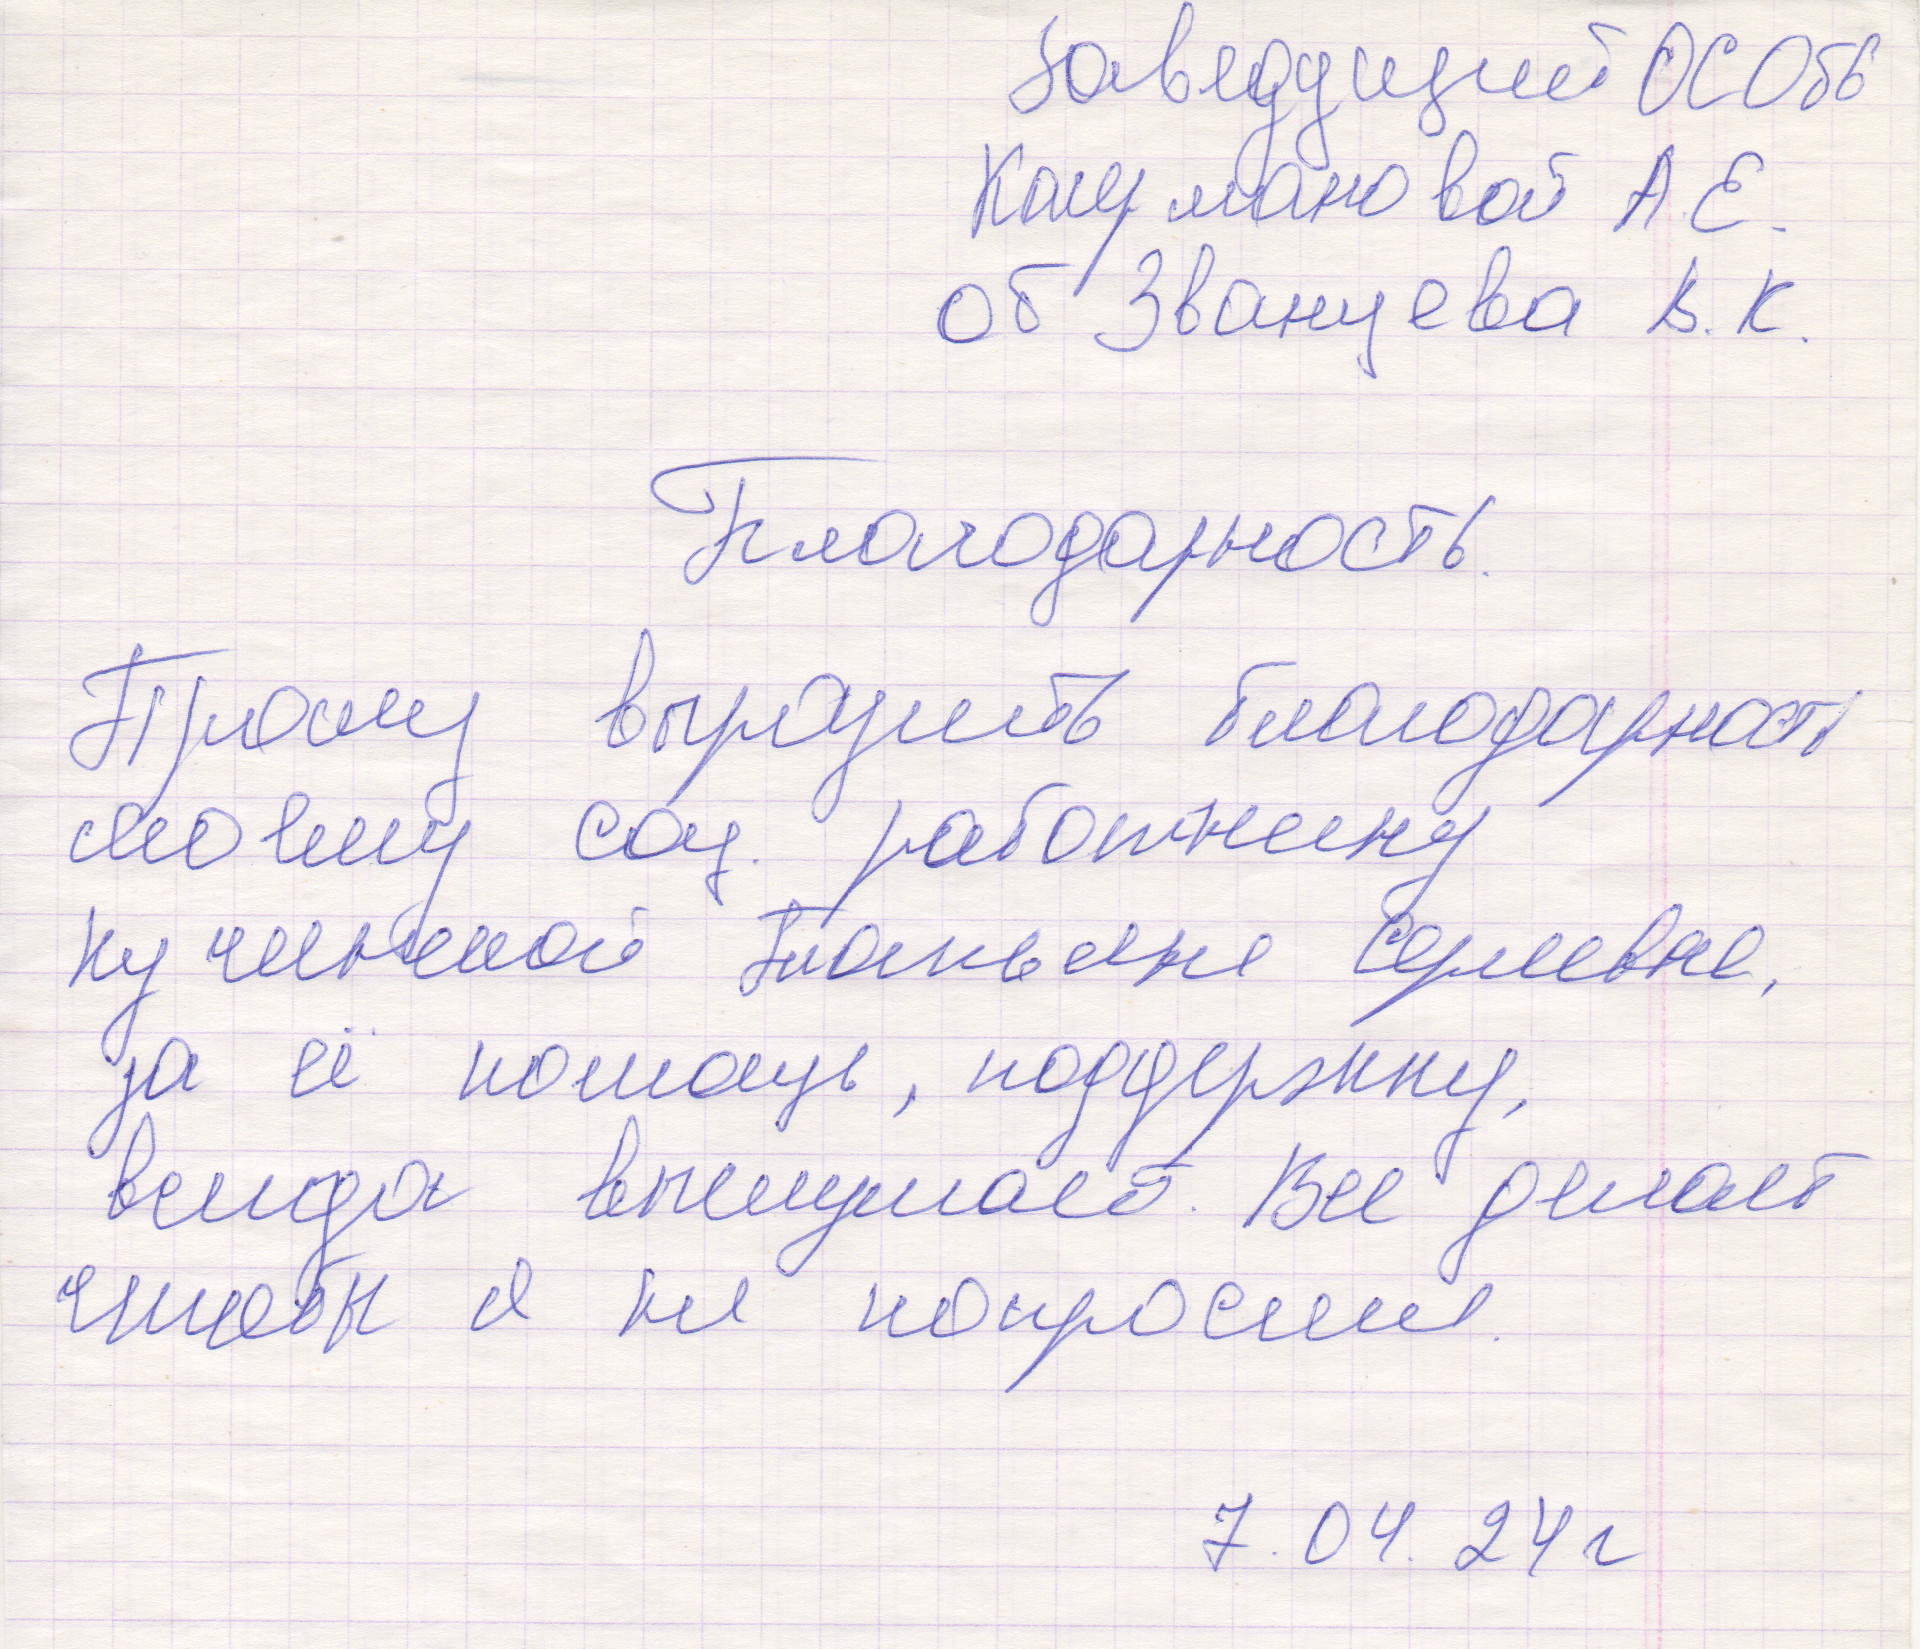 Заведущий ОСОбб
Кацмановой А.Е.
об Званцева В.К.
Благодарность.
Прошу выразить благодарность
моему соц. работнику
Кучинской Татьяне Сергевне,
за её помощь, поддержку,
всегда выслушает. Все делает
чтобы я не попросил.
7.04.24г